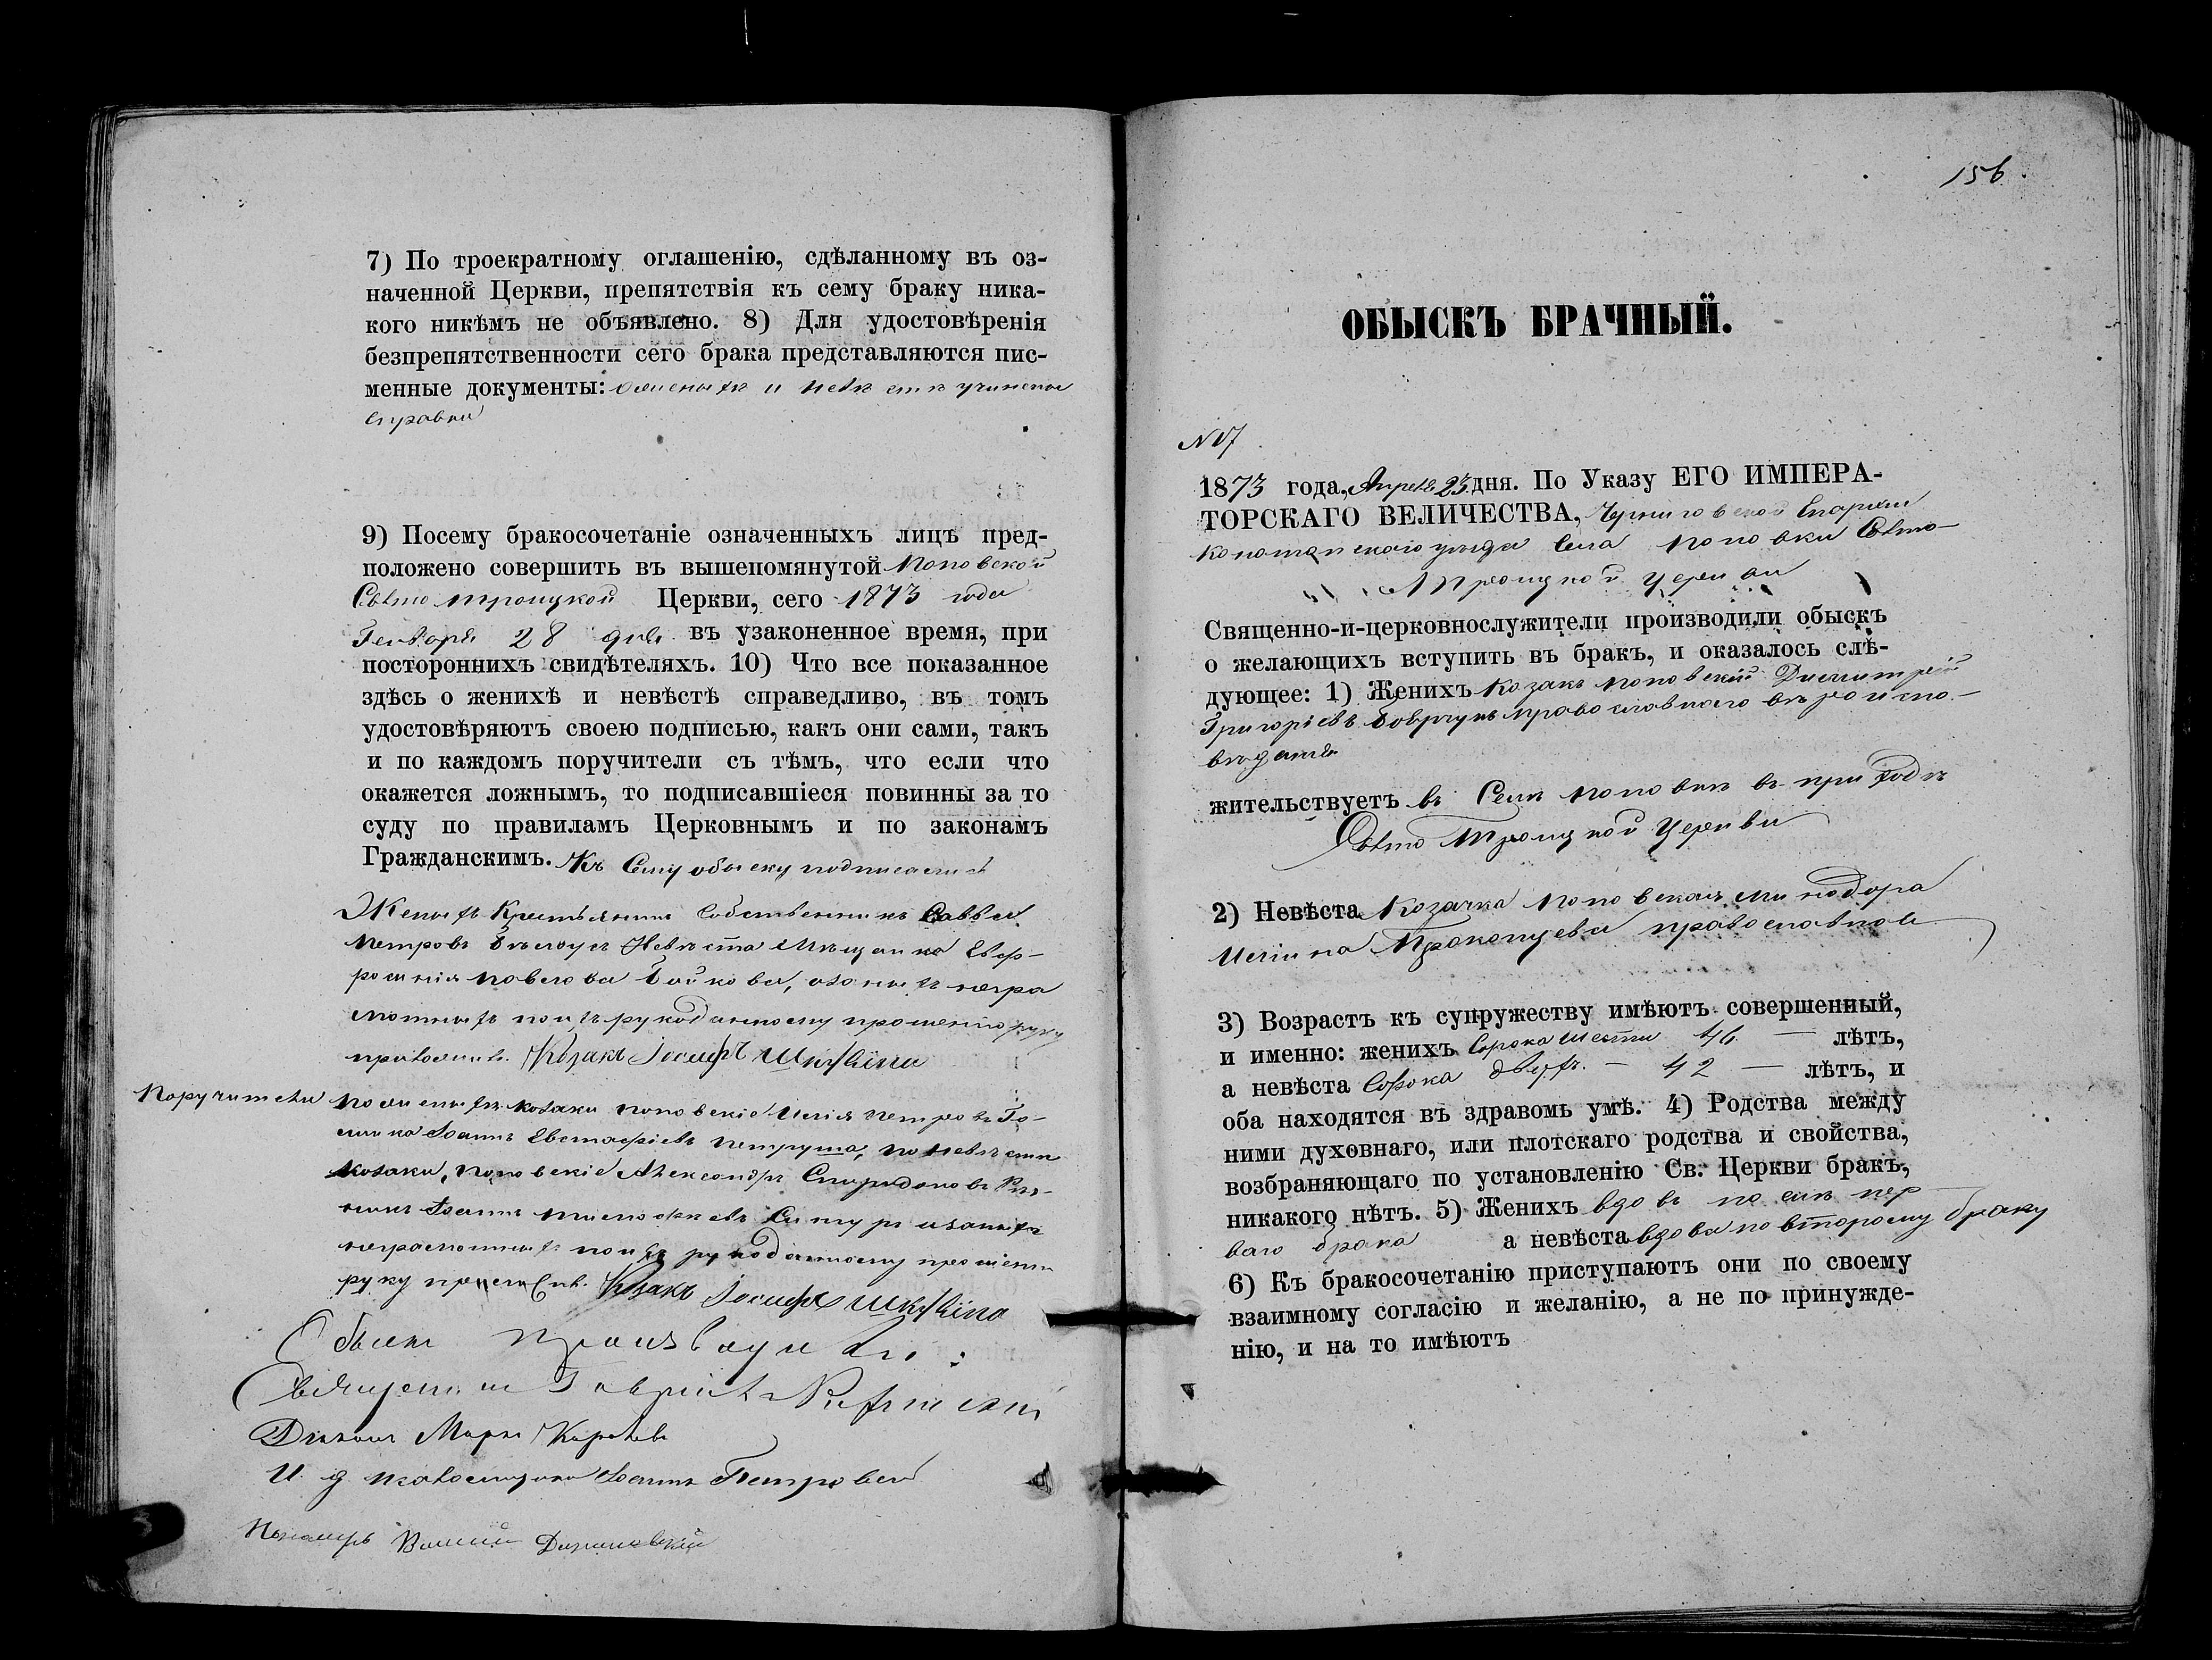 7) По троекратному оглашенію, сдѣланному въ оз-
наченной Церкви, препятствія къ сему браку ника-
кого никѣмъ не объявлено. 8) Для удостовѣренія
безпрепятственности сего брака представляются пис-
менные документы: о женихѣ и невѣстѣ учинено
справки
9) Посему бракосочетаніе означенныхъ лицъ пред-
положено совершить въ вышепомянутой Поповской
Свято Троицкой Церкви, сего 1873 года
Генваря 28 дня въ узаконенное время, при
постороннихъ свидѣтеляхъ. 10) Что все показанное
здѣсь о женихѣ и невѣстѣ справедливо, въ томъ
удостовѣряютъ своею подписью, какъ они сами, такъ
и по каждомъ поручители съ тѣмъ, что если что
окажется ложнымъ, то подписавшіеся повинны за то
суду по правиламъ Церковнымъ и по законамъ
Гражданскимъ. Къ сему обыску подписались
Женихъ Крестьянинъ Собственникъ Савва
Петровъ Невѣста Мѣщанка Евф-
росинія Павлова Бойкова, а за нихъ негра
мотныхъ по ихъ рукоданному прошенію руку
приложилъ Козакъ Іосифъ
Поручители
По женихѣ козаки поповскіе Илія Петровъ Го-
Іоаннъ Евстафіевъ Петруша, по невѣстѣ
козаки поповскіе Александръ Спиридоновъ
Іоаннъ а за нихъ
неграмотныхъ по ихъ рукоданному прошенію
руку приложилъ Козакъ Іосифъ
Обыскъ производили:
Священникъ Гавріилъ
Діаконъ Маркъ Королевъ
И. д. псаломщика Іоаннъ Петровскій
Пономарь
156.
ОБЫСКЪ БРАЧНЫЙ.
N 17
1873 года, Апреля 23 дня. По Указу ЕГО ИМПЕРА-
ТОРСКАГО ВЕЛИЧЕСТВА, Черниговской Епархіи
Конотопского уѣзда Села Поповки Свято-
Троицкой Церкви
Священно-и-церковнослужители производили обыскъ
о желающихъ вступить въ бракъ, и оказалось слѣ-
дующее: 1) Женихъ Козакъ Поповскій Димитрій
Григоріевъ православного вѣроиспо-
вѣданія
жительствуетъ въ Селѣ Поповкѣ въ приходѣ
Свято Троицкой Церкви
2) Невѣста Козачка Поповская Минодора
Иліина Прокопцева православная
3) Возрастъ къ супружеству имѣютъ совершенный,
и именно: женихъ Сорока шести 46 — лѣтъ,
а невѣста Сорока двухъ - 42 — лѣтъ, и
оба находятся въ здравомъ умѣ. 4) Родства между
ними духовнаго, или плотскаго родства и свойства,
возбраняющаго по установленію Св. Церкви бракъ,
никакого нѣтъ. 5) Женихъ вдовъ послѣ пер-
ваго брака а невѣста вдова по второму браку
6) Къ бракосочетанію приступаютъ они по своему
взаимному согласію и желанію, а не по принужде-
нію, и на то имѣютъ